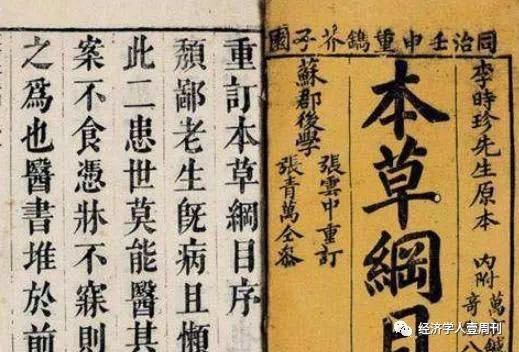 同治壬申重鐫芥子園
李時珍先生原本
內附
本草綱目
張雲中重訂
張青萬仝參
蘇郡後學
重訂本草綱目序
頹鄙老生旣病且懶
此二患世莫能醫其
案不食憑牀不寐則
之爲也醫書堆於前
经济学人壹周刊